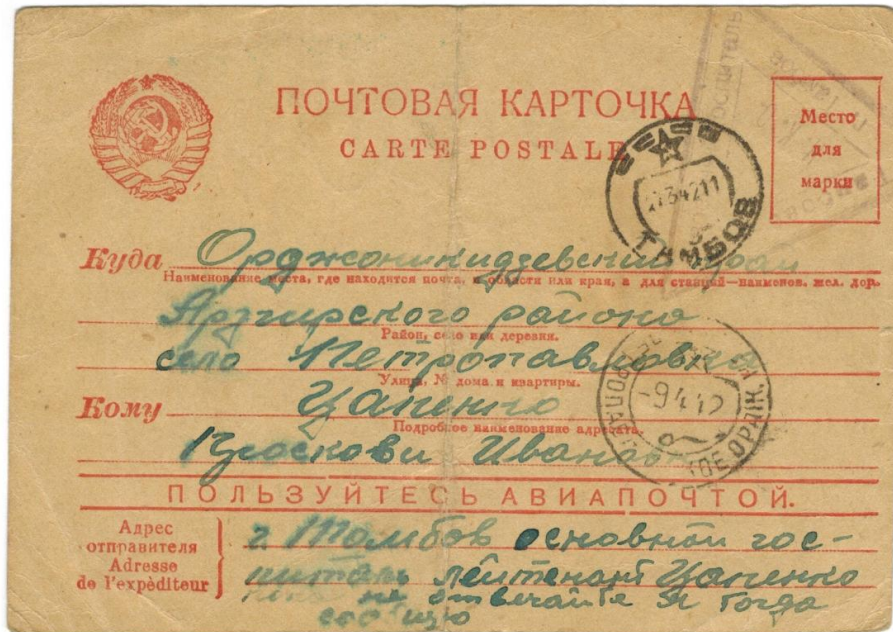 ПОЧТОВАЯ КАРТОЧКА
CARTE POSTALE
Место
для
марки
ТАМБОВ
Куда Орджоникидзевский край
Наименование места, где находится почта, и области или края, а для станций—наименов. жел. дор.
Арзгирского района
Район, село или деревня.
село Петропавловка
Улица, № дома и квартиры.
-9 4 42
Кому Цапенко
Подробное наименование адресата.
Ивановне
ПОЛЬЗУЙТЕСЬ АВИАПОЧТОЙ.
Адрес
отправителя
Adresse
de l'expèditeur
г. Тамбов основной гос-
питаль лейтенант Цапенко
не отвечайте я тогда
сообщу